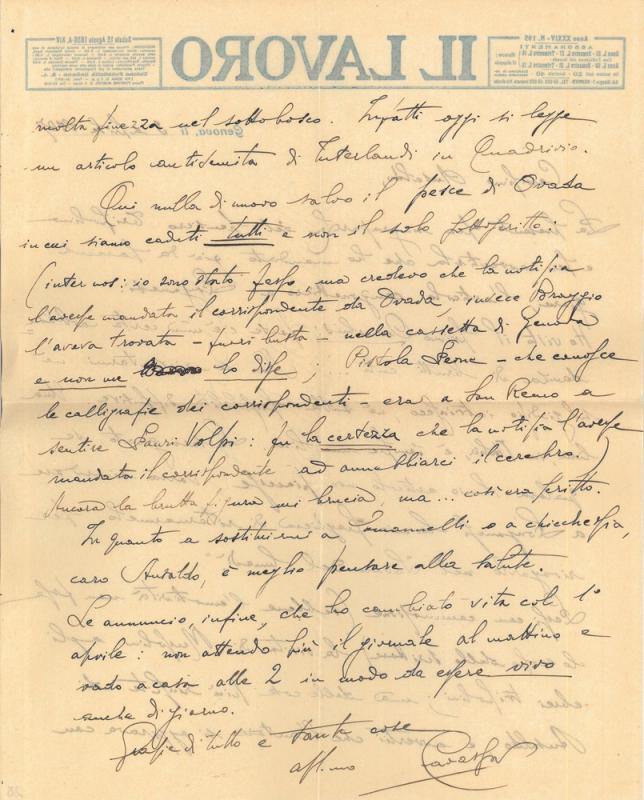 IL LAVORO
Anno XXXIV. N. 195
ABBONAMENTI
Sabato 15 Agosto 1936-A.XIV
Genova, li
molta finezza nel sottobosco. Infatti oggi si legge
un articolo antisemita di Interlandi in Quadrivio.
Qui nulla di nuovo salvo il pesce di Ovada
in cui siamo caduti tutti e non il solo sottoscritto:
(inter nos: io sono stato fesso, ma credevo che la notizia
l'avesse mandata il corrispondente da Ovada, invece Braggio
l'aveva trovata - fuori busta - nella cassetta di Genova
e non me lo disse; Pistola Leone - che conosce
le calligrafie dei corrispondenti - era a San Remo a
sentire Lauri Volpi: fu la certezza che la notizia l'avesse
mandata il corrispondente ad annebbiarci il cerebro.)
Ancora la brutta figura mi brucia, ma... così era scritto.
In quanto a sostituirmi a Emannelli o a chicchessia,
caro Ansaldo, è meglio pensare alla salute.
Le annuncio, infine, che ho cambiato vita col 1°
aprile: non attendo più il giornale al mattino e
vado a casa alle 2 in modo da essere vivo
anche di giorno.
Grazie di tutto e tante cose
aff.mo